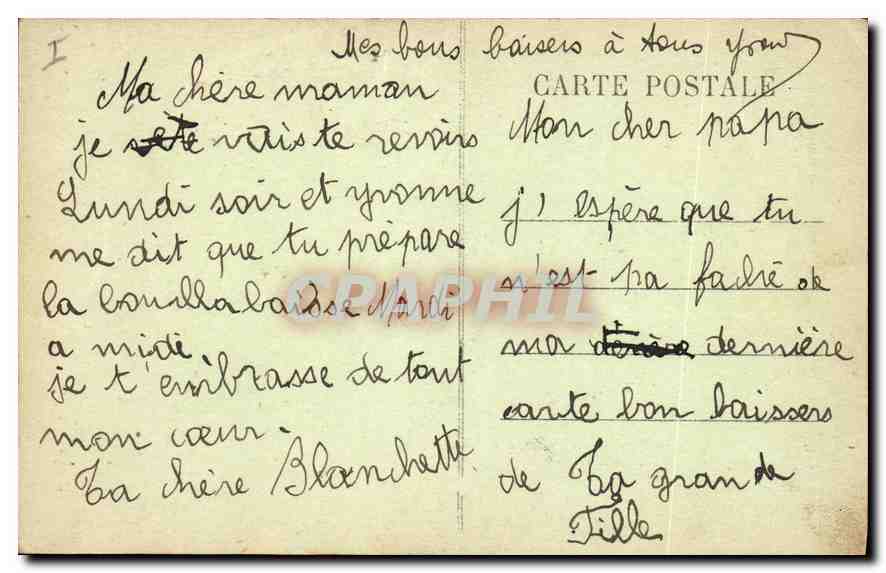 I
Mes bons baisers à tous Yvon
CARTE POSTALE
Ma chère maman
je vais te revoirs
Lundi soir et yvonne
me dit que tu prépare
la bouillabaisse Mardi
a midi.
je t'embrasse de tout
mon cœur.
Ta chère Blanchette
Mon cher papa
j'espère que tu
n'est pa faché de
ma dernière
carte bon baissers
de Ta grande
Fille
CPAPHIL